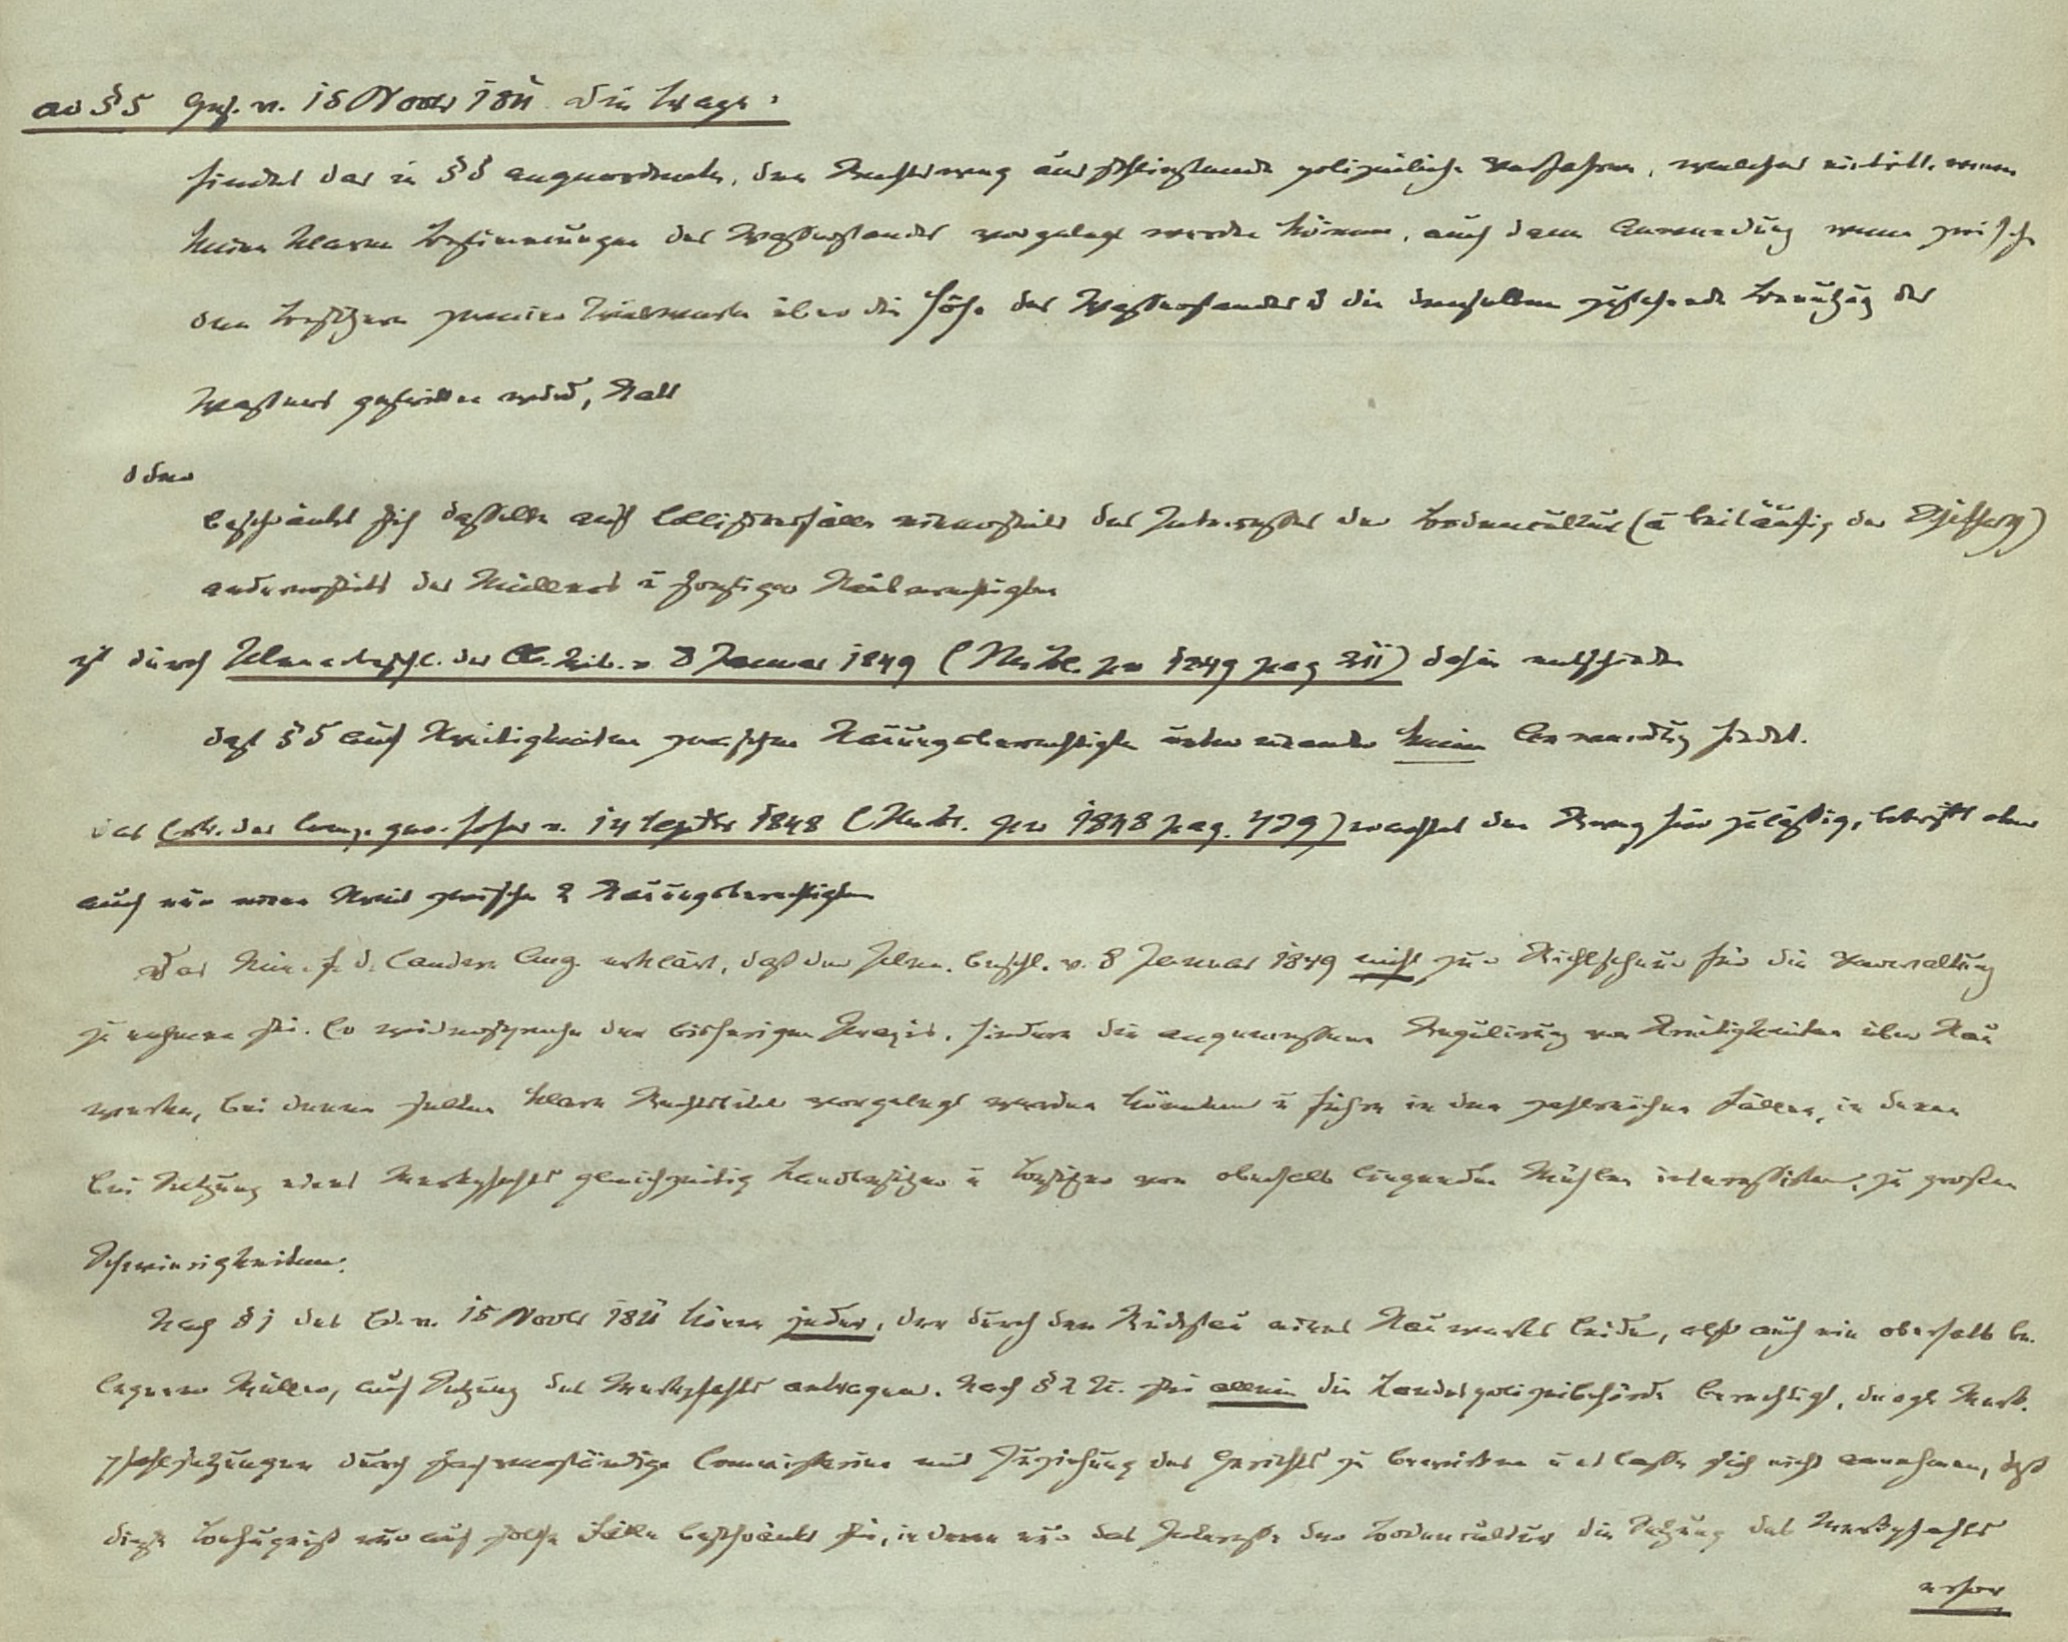 ad § 5 Ges. v. 15 Novbr 1811 die Frage:
findet das in § 5 angeordnete, den Rechtsweg ausschließende polizeiliche Verfahren, welches eintritt, wenn
keine klaren Bestimmungen des Wasserstandes vorgelegt werden können, auch dann Anwendung wenn zwisch
den Besitzern zweier Triebwerke über die Höhe des Wasserstandes u die denselben zustehende Benutzg des
Wassers gestritten wird, statt
oder
beschränkt sich dasselbe auf Collisionsfälle einerseits des Interesses der Bodencultur (u beiläufig der Schifffahrt)
andererseits des Müllers u sonstiger Stauberechtigten
ist durch Plenarbeschl. des Ob. Trib. v 8 Januar 1849 (M. Bl. pro 1849 pag 211) dahin entschieden
daß § 5 auf Streitigkeiten zwischen Stauungsberechtigten unter einander keine Anwendung findet.
das Erk. des Comp. Ger. Hofes v. 14 Septbr 1848 (M. Bl. pro 1848 pag. 729) erachtet den Rweg für zulässig, betrifft aber
auch nur einen Streit zwischen 2 Stauungsberechtigten
Das Min. f. d. landw. Ang. erklärt, daß der Plen. Beschl. v. 8 Januar 1849 nicht zur Richtschnur für die Verwaltung
zu nehmen sei. Er widerspreche der bisherigen Praxis, hindere die angemessene Regulirung von Streitigkeiten über Stau
werke, bei denen selten klare Rechtstitel vorgelegt werden könnten u führe in den zahlreichen Fällen, in denen
bei Setzung eines Merkpfahls gleichzeitig Landbesitzer u Besitzer von oberhalb liegenden Mühlen interessirten, zu großen
Schwierigkeiten.
Nach § 1 des Ed. v. 15 Novbr 1811 könne jeder, der durch den Rückstau eines Stauwerks leide, also auch ein oberhalb be-
legener Müller, auf Setzung des Merkpfahls antragen. Nach § 2 sei allein die Landespolizeibehörde berechtigt, dergl. Merk-
pfahlsetzungen durch sachverständige Commissarien mit Zuziehung des Gerichts zu bewirken u es lasse sich nicht annehmen, daß
diese Befugniß nur auf solche Fälle beschränkt sei, in denen nur das Interesse der Bodencultur die Setzung des Merkpfahls
erfor